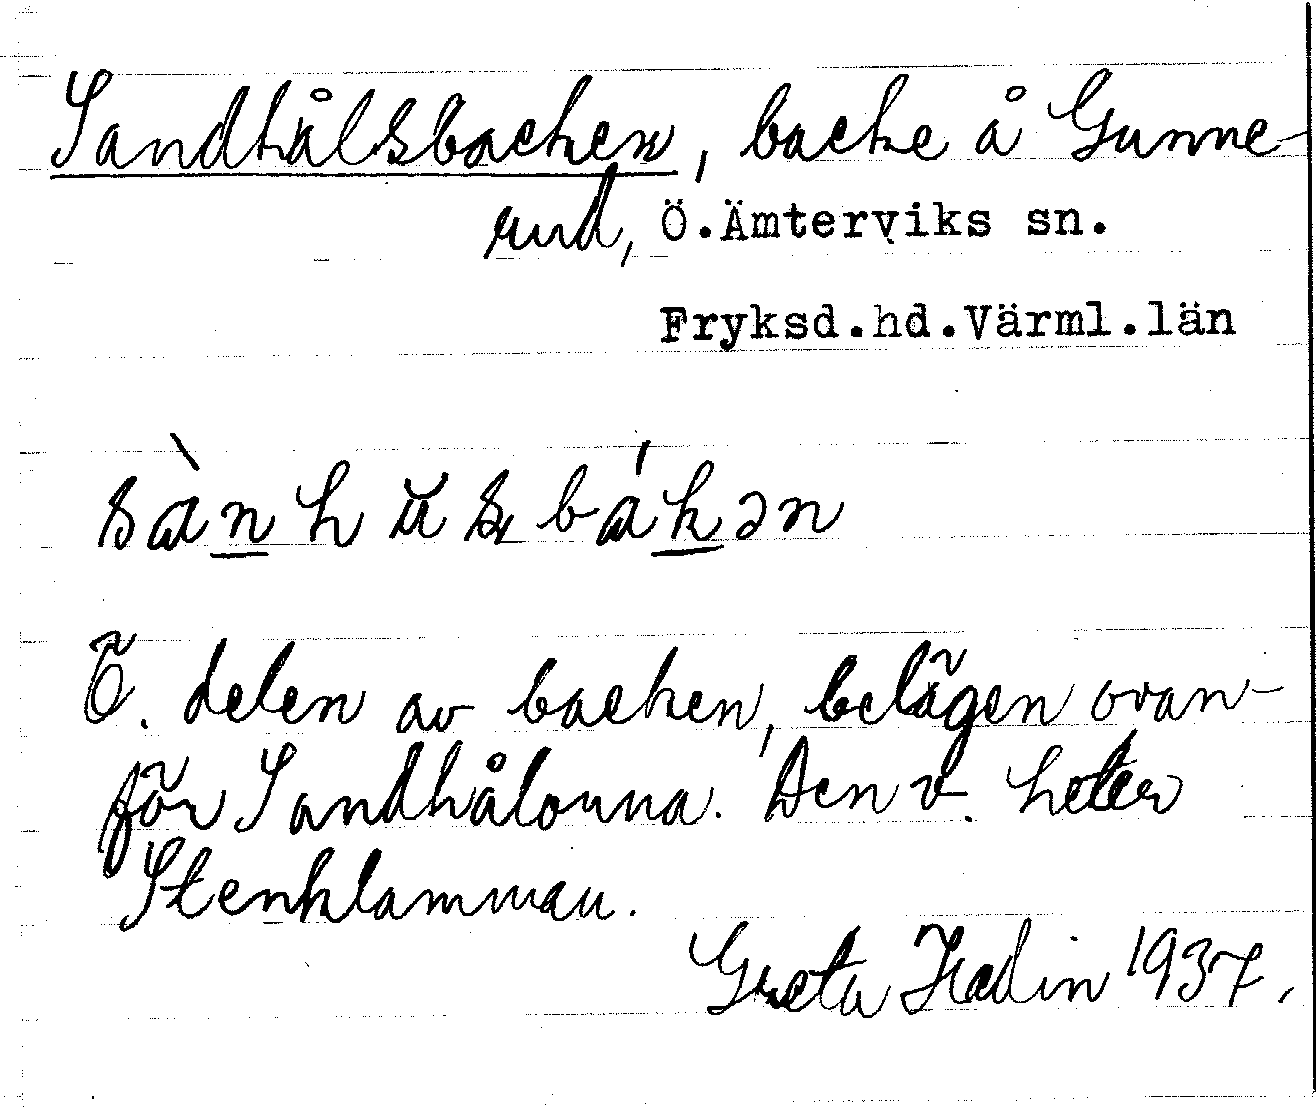 Sandhålsbacken, backe å Gunne-
rud, Ö.Ämterviks sn.
Fryksd.hd.Värml.län
Ö. delen av backen, belägen ovan-
för Sandhålorna. Den v. heter
Stenklamman.
Greta Hedin 1937.